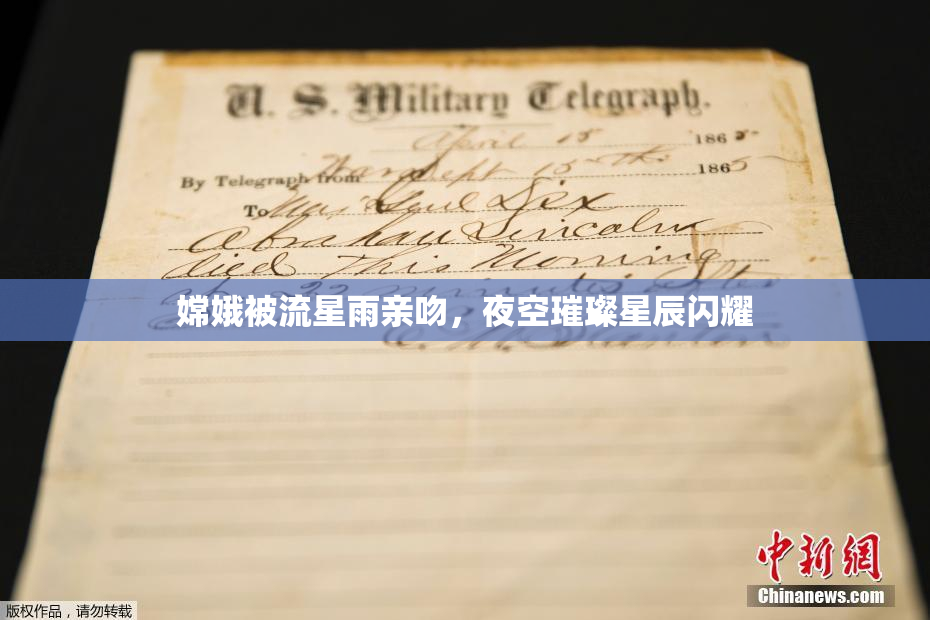 U. S. Military Telegraph.
April 15 1865
By Telegraph from War Dept 15th 1865
To Maj Genl Dix
Abraham Lincoln
died This Morning
22 minutes after
嫦娥被流星雨亲吻，夜空璀璨星辰闪耀
E. M. Stanton
中新网
Chinanews.com
版权作品，请勿转载